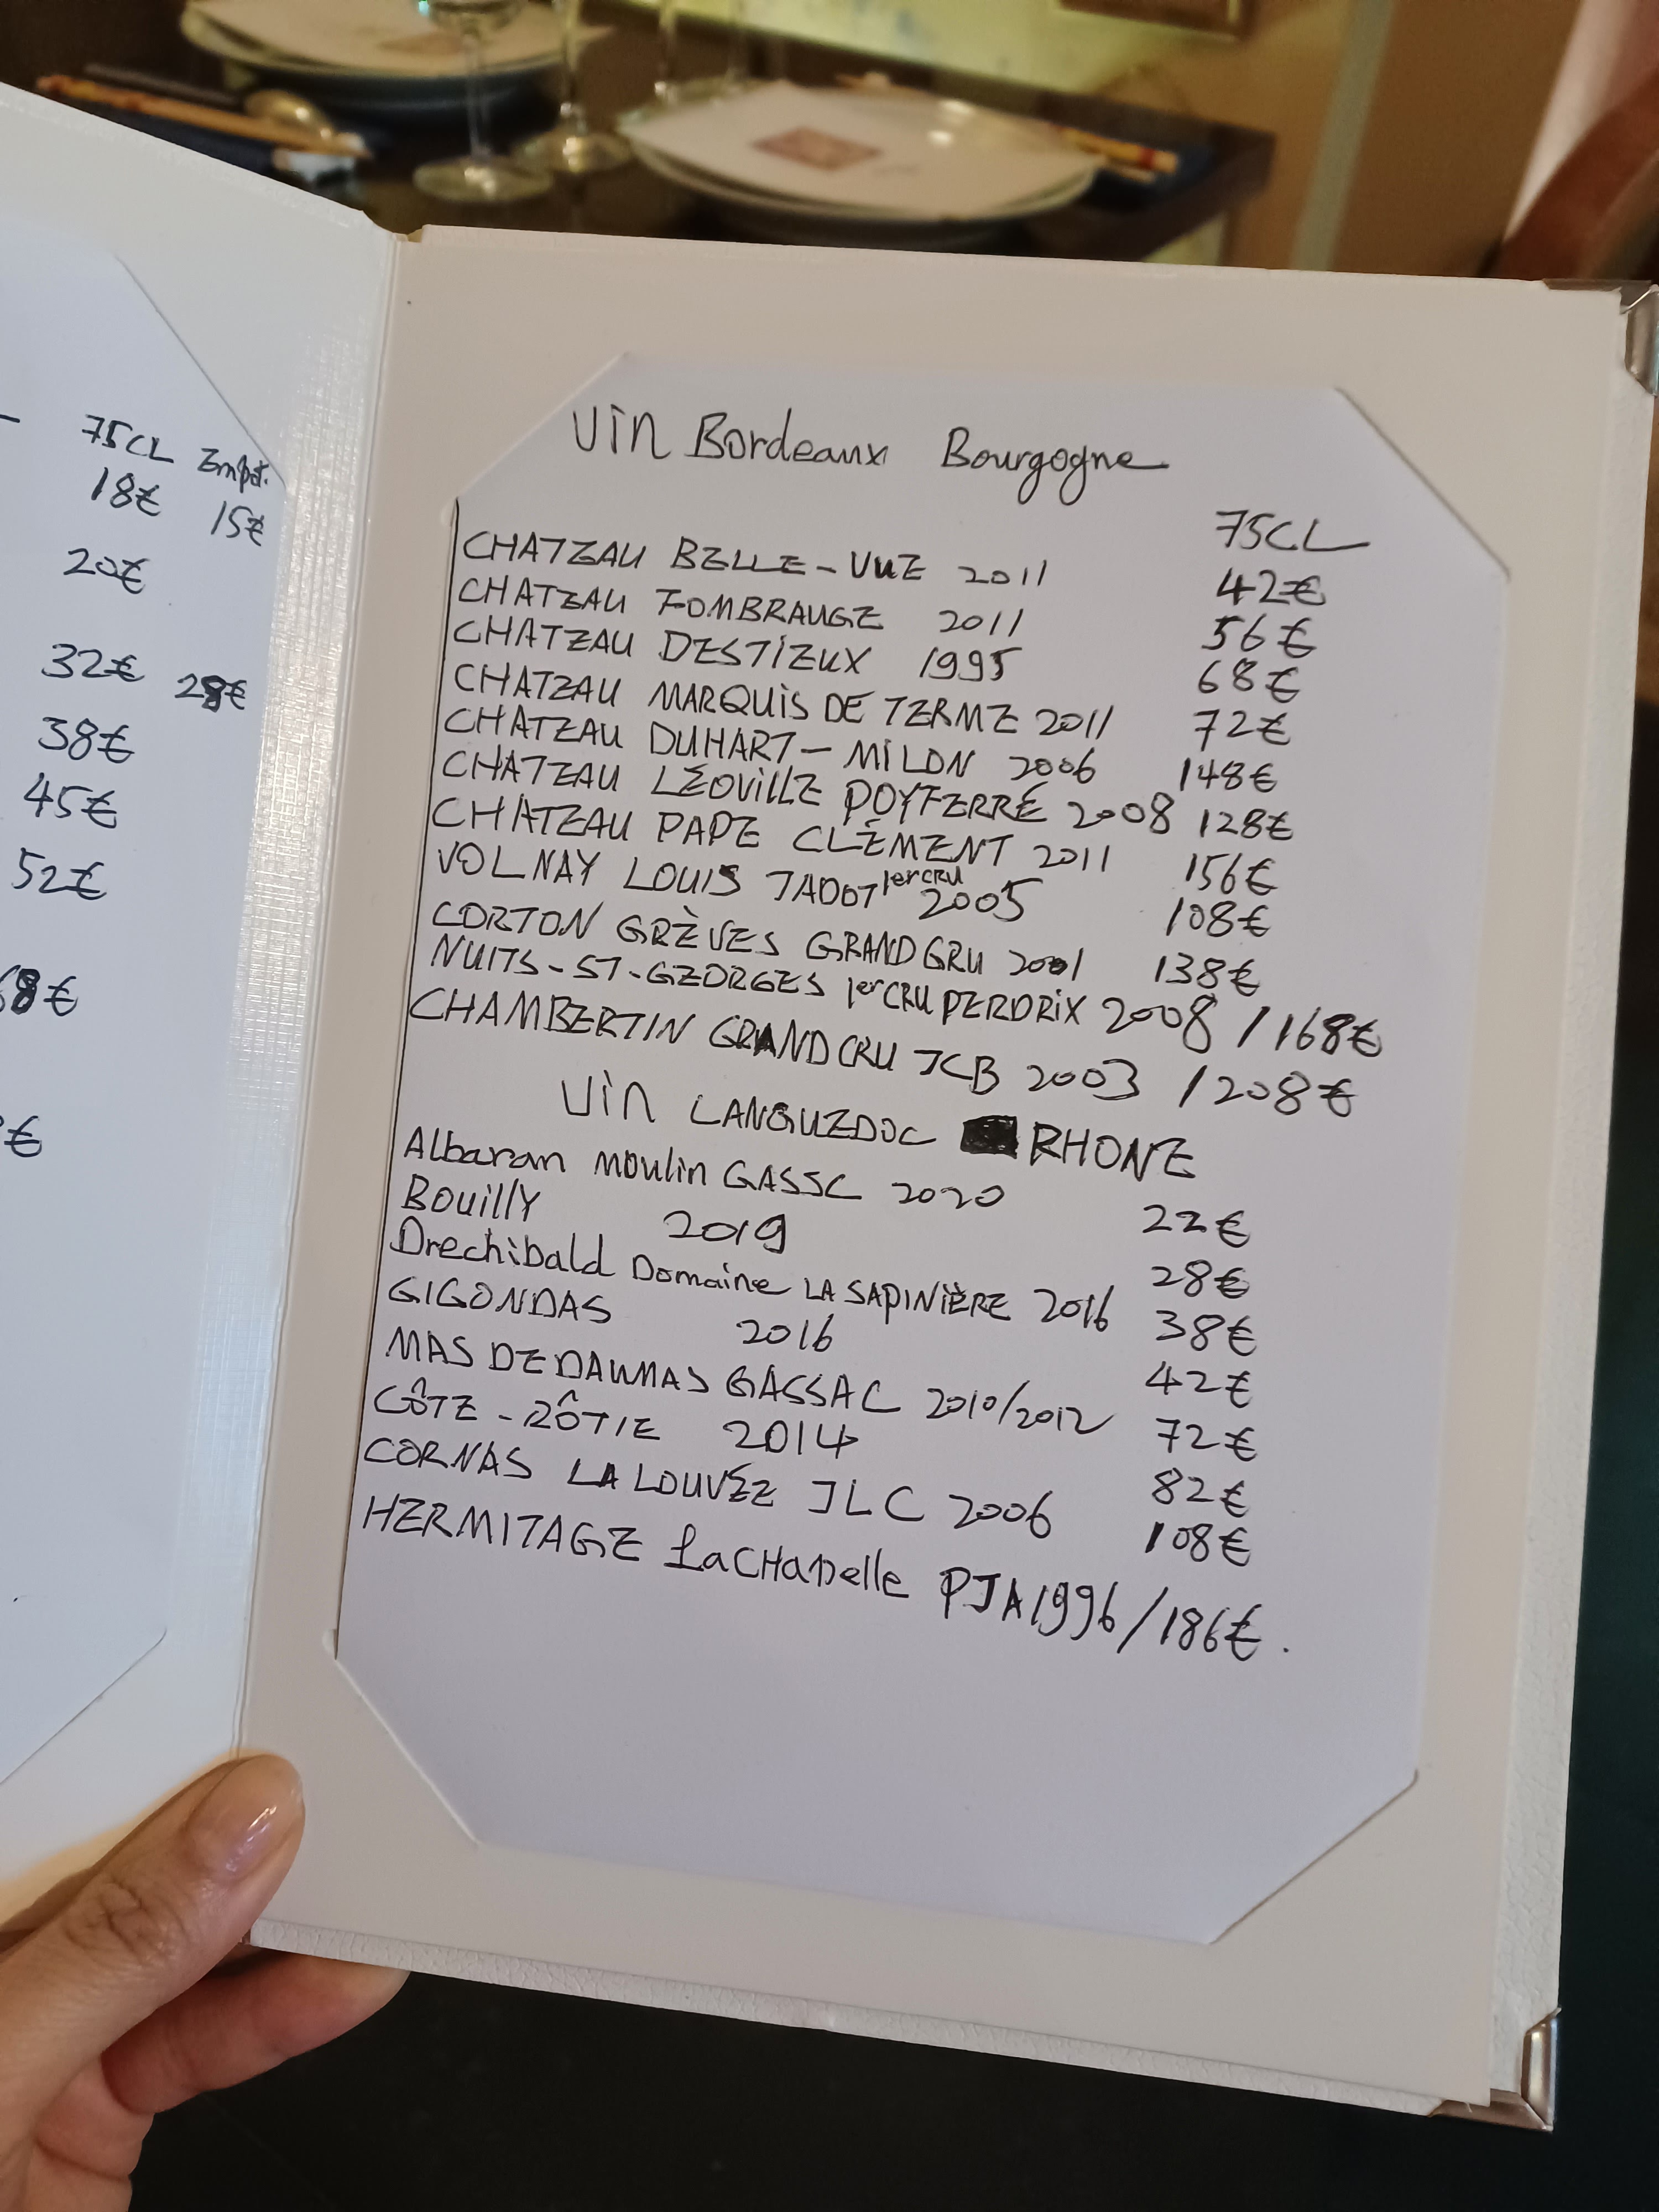 75CL Empt.
18€ 15€
20€
32€ 28€
38€
45€
52€
68€
€
Vin Bordeaux Bourgogne
75CL
CHATEAU BELLE-VUE 2011 42€
CHATEAU FOMBRAUGE 2011 56€
CHATEAU DESTIEUX 1995 68€
CHATEAU MARQUIS DE TERME 2011 72€
CHATEAU DUHART-MILON 2006 148€
CHATEAU LÉOVILLE POYFERRÉ 2008 128€
CHATEAU PAPE CLÉMENT 2011 156€
VOLNAY LOUIS JADOT 1er CRU 2005 108€
CORTON GRÈVES GRAND GRU 2001 138€
NUITS-ST-GEORGES 1er CRU PERDRIX 2008 / 168€
CHAMBERTIN GRAND CRU JCB 2003 / 208€
Vin LANGUEDOC RHONE
Albaran Moulin GASSC 2020 22€
Bouilly 2019 28€
Drechibald Domaine LA SAPINIÈRE 2016 38€
GIGONDAS 2016 42€
MAS DE DAUMAS GASSAC 2010/2012 72€
CÔTE-RÔTIE 2014 82€
CORNAS LA LOUVÉE JLC 2006 108€
HERMITAGE La CHapelle PJA 1996 / 186€.